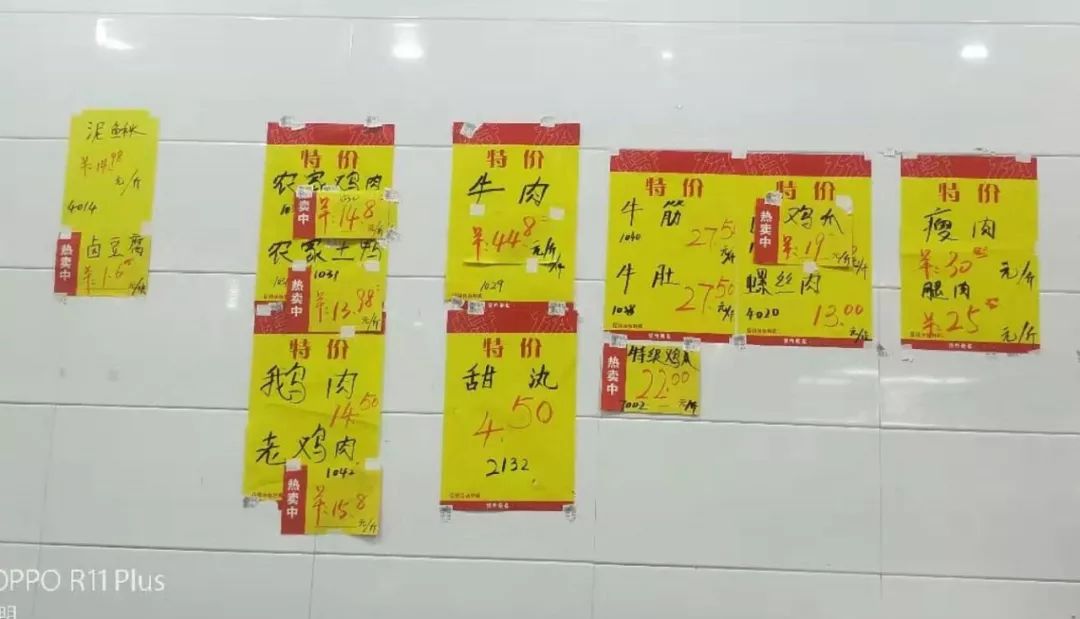 泥鳅
羊14.98
元/斤
4014
热卖中
卤豆腐
羊:1.6
特价
农家鸡肉
热卖中
羊:14.8
元/斤
农家土鸭
1031
热卖中
羊:13.98
元/斤
特价
鹅肉
14.50
老鸡肉
1042
热卖中
羊:15.8
元/斤
特价
牛肉
羊:44.8
元/斤
1029
特价
甜沆
4.50
2132
特价
牛筋
1040
27.50
元/斤
牛肚
1028
27.50
元/斤
特价
热卖中
鸡爪
羊:19
螺丝肉
4020
13.00
热卖中
特级鸡爪
22.00
7002
元/斤
特价
瘦肉
羊:30
元/斤
腿肉
羊:25
元/斤
OPPO R11 Plus